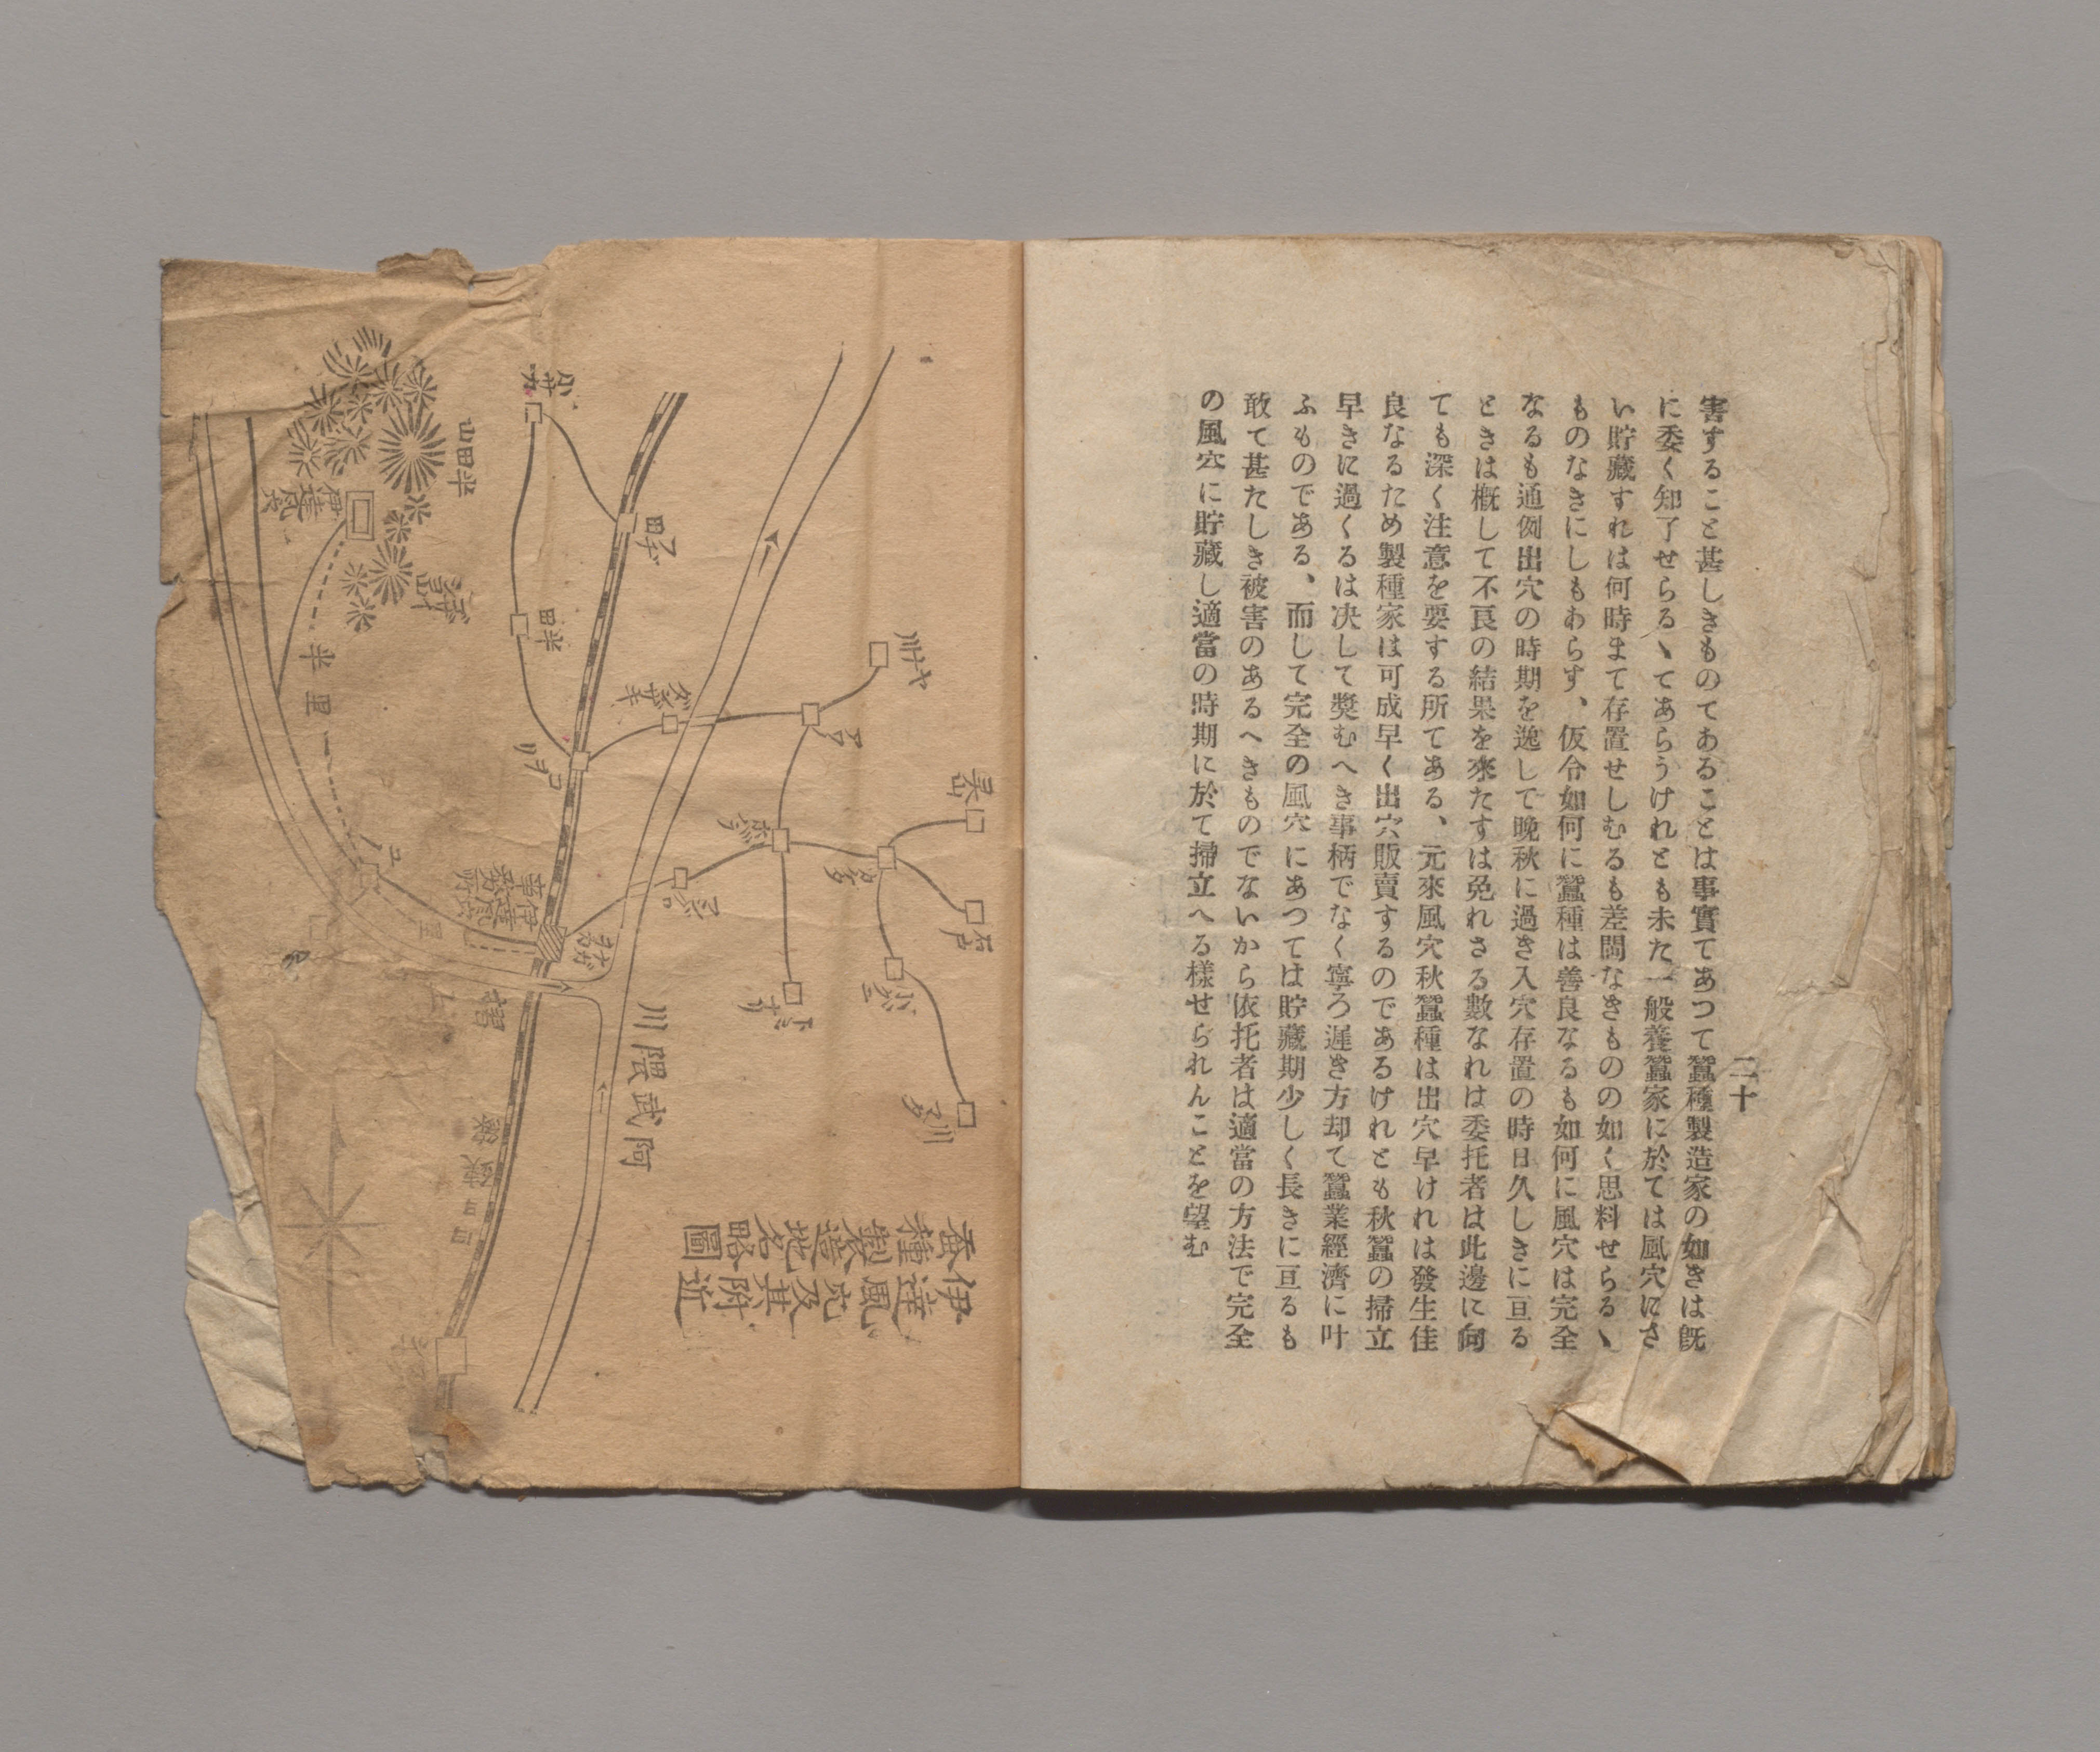 二十
害すること甚しきものてあることは事實てあつて蠶種製造家の如きは既
に委く知了せらるゝてあらうけれとも未た一般養蠶家に於ては風穴にさ
い貯藏すれは何時まて存置せしむるも差閊なきものの如く思料せらるゝ
ものなきにしもあらす、仮令如何に蠶種は善良なるも如何に風穴は完全
なるも通例出穴の時期を逸して晩秋に過き入穴存置の時日久しきに亘る
ときは概して不良の結果を來たすは免れさる數なれは委托者は此邊に向
ても深く注意を要する所てある、元來風穴秋蠶種は出穴早けれは發生佳
良なるため製種家は可成早く出穴販賣するのであるけれとも秋蠶の掃立
早きに過くるは决して奬むへき事柄でなく寧ろ遲き方却て蠶業經濟に叶
ふものである、而して完全の風穴にあつては貯藏期少しく長きに亘るも
敢て甚たしき被害のあるへきものでないから依托者は適當の方法で完全
の風穴に貯藏し適當の時期に於て掃立へる樣せられんことを望む
伊達風穴及其附近
蚕種製造地名略圖
阿武隈川
半田山
伊達風穴
半田
半里
桑折
伊達風穴
事務所